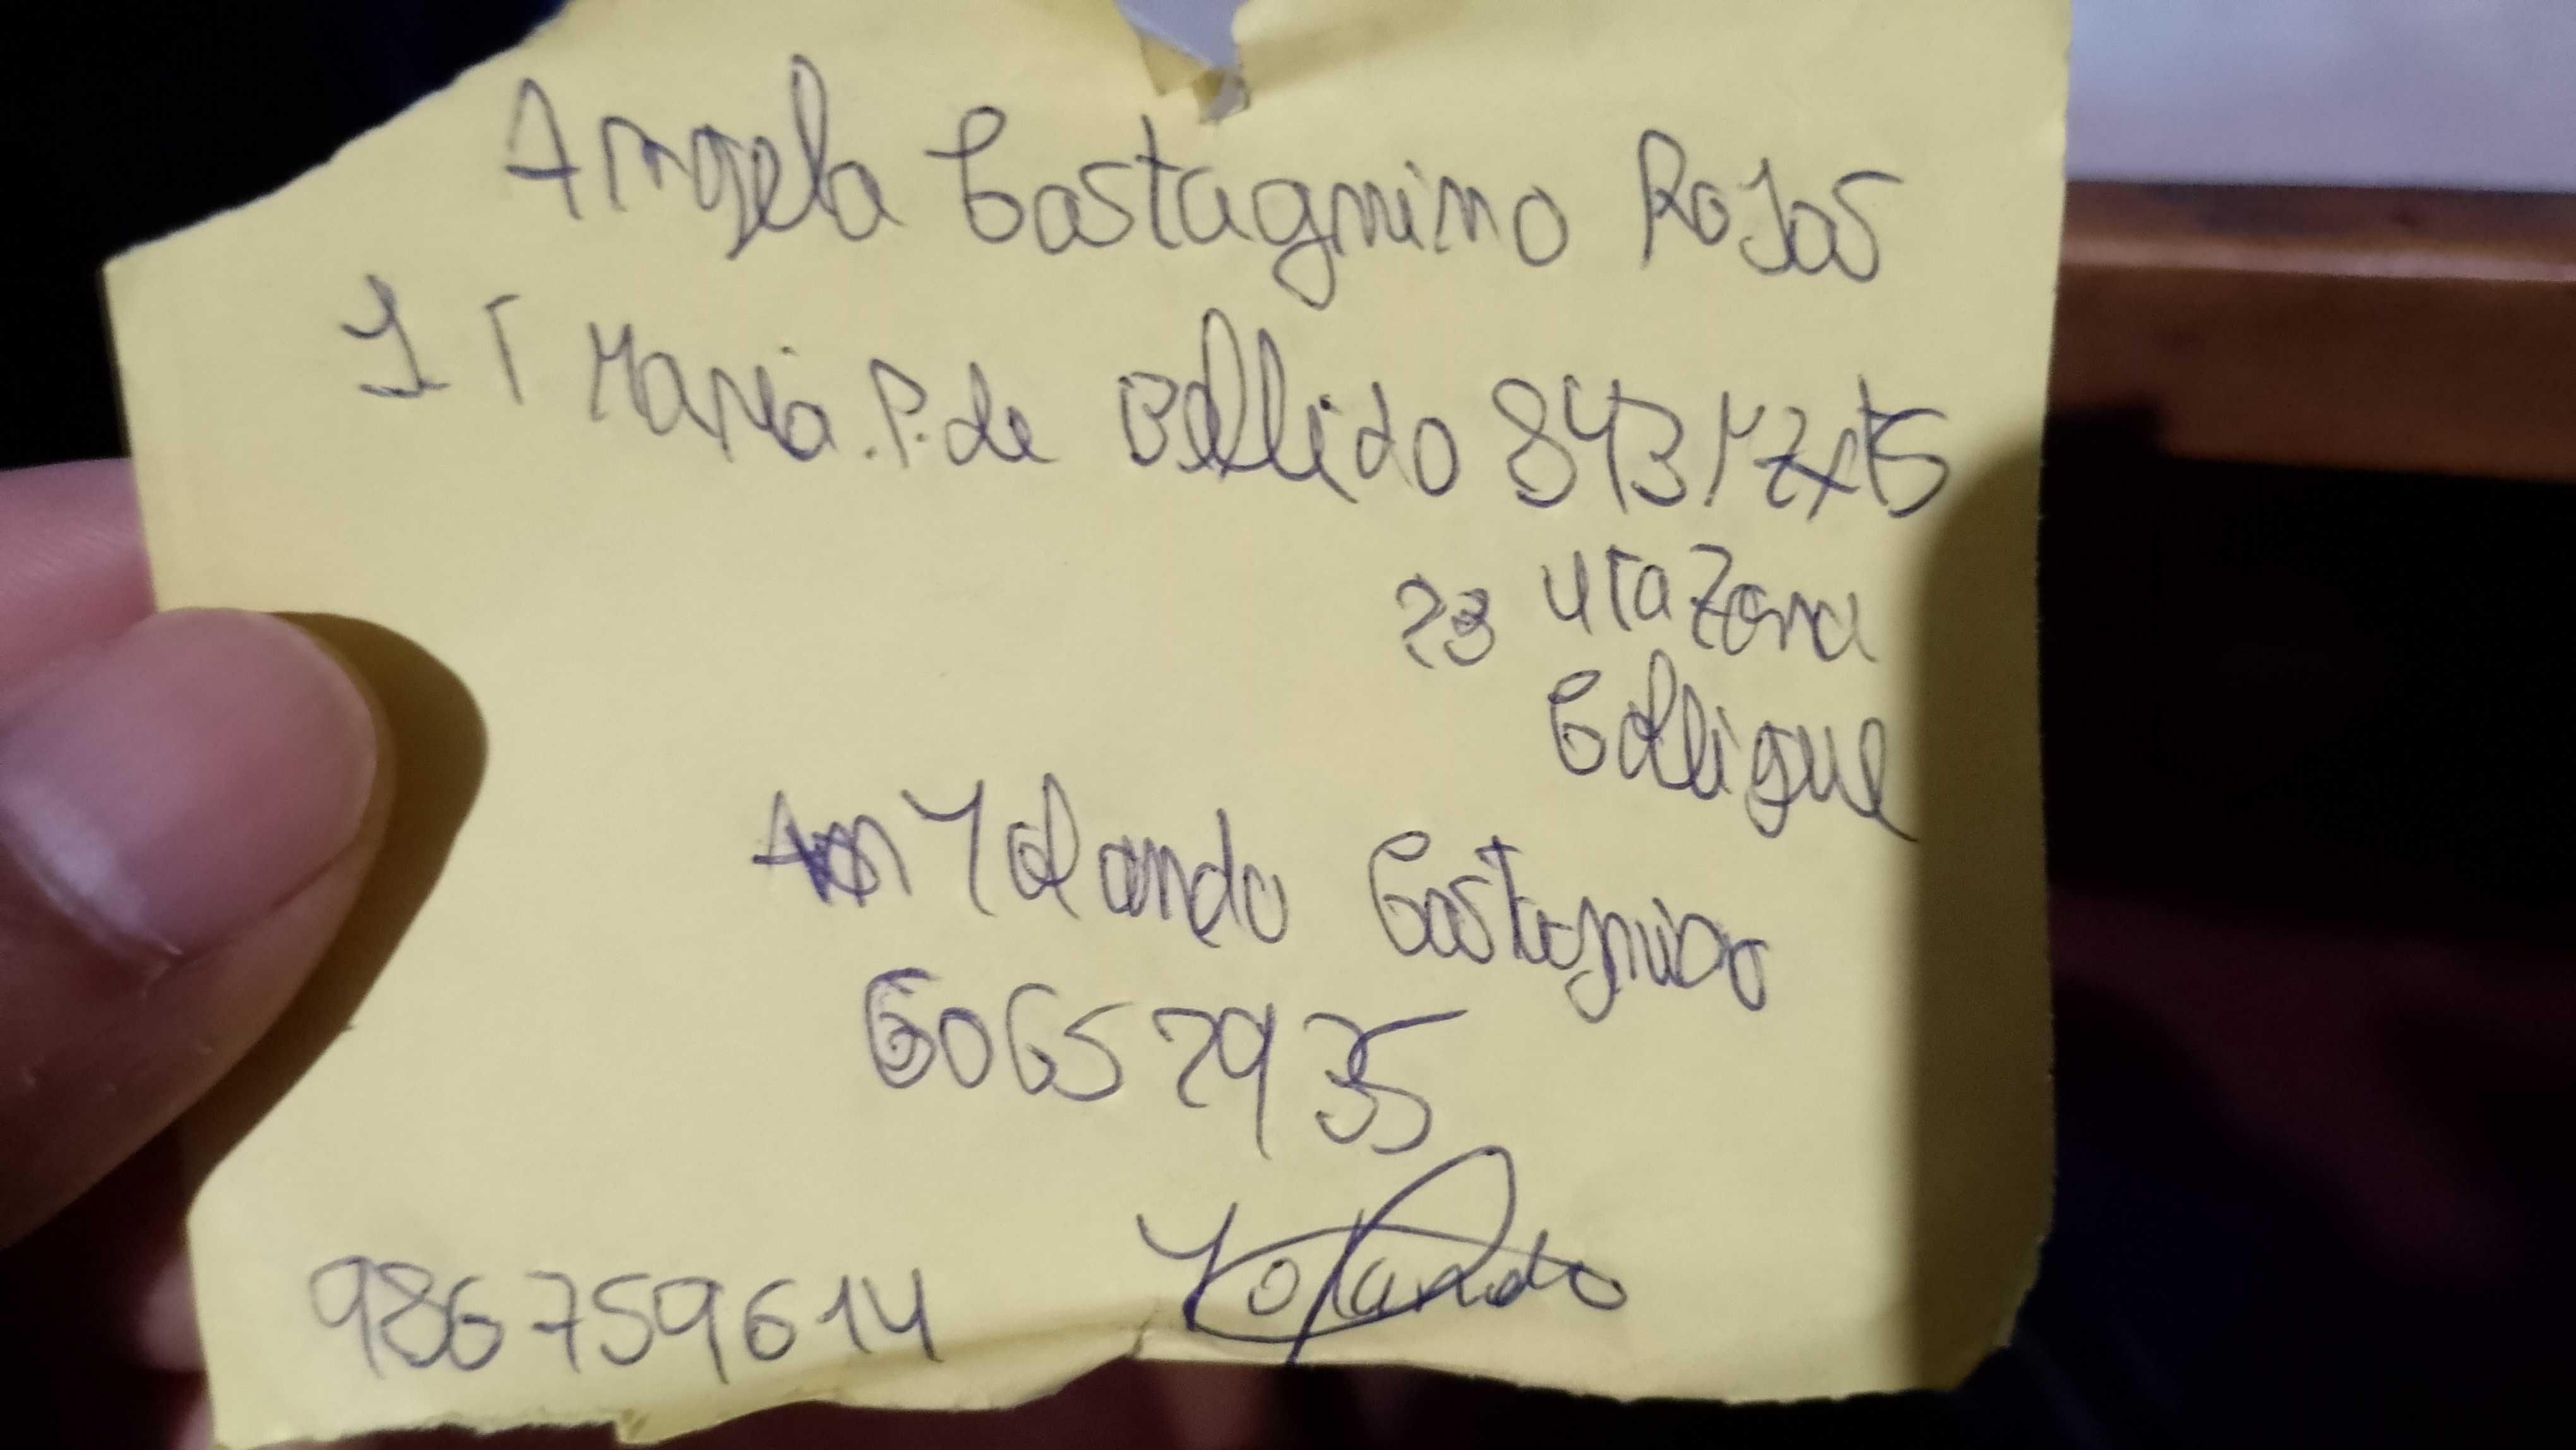 Angela Castagnino Rojas
Jr Maria.P.de Bellido 843 Mz x 15
23 4ta Zona
Collique
Yolando Castagnino
60652935
986759614 Yolando